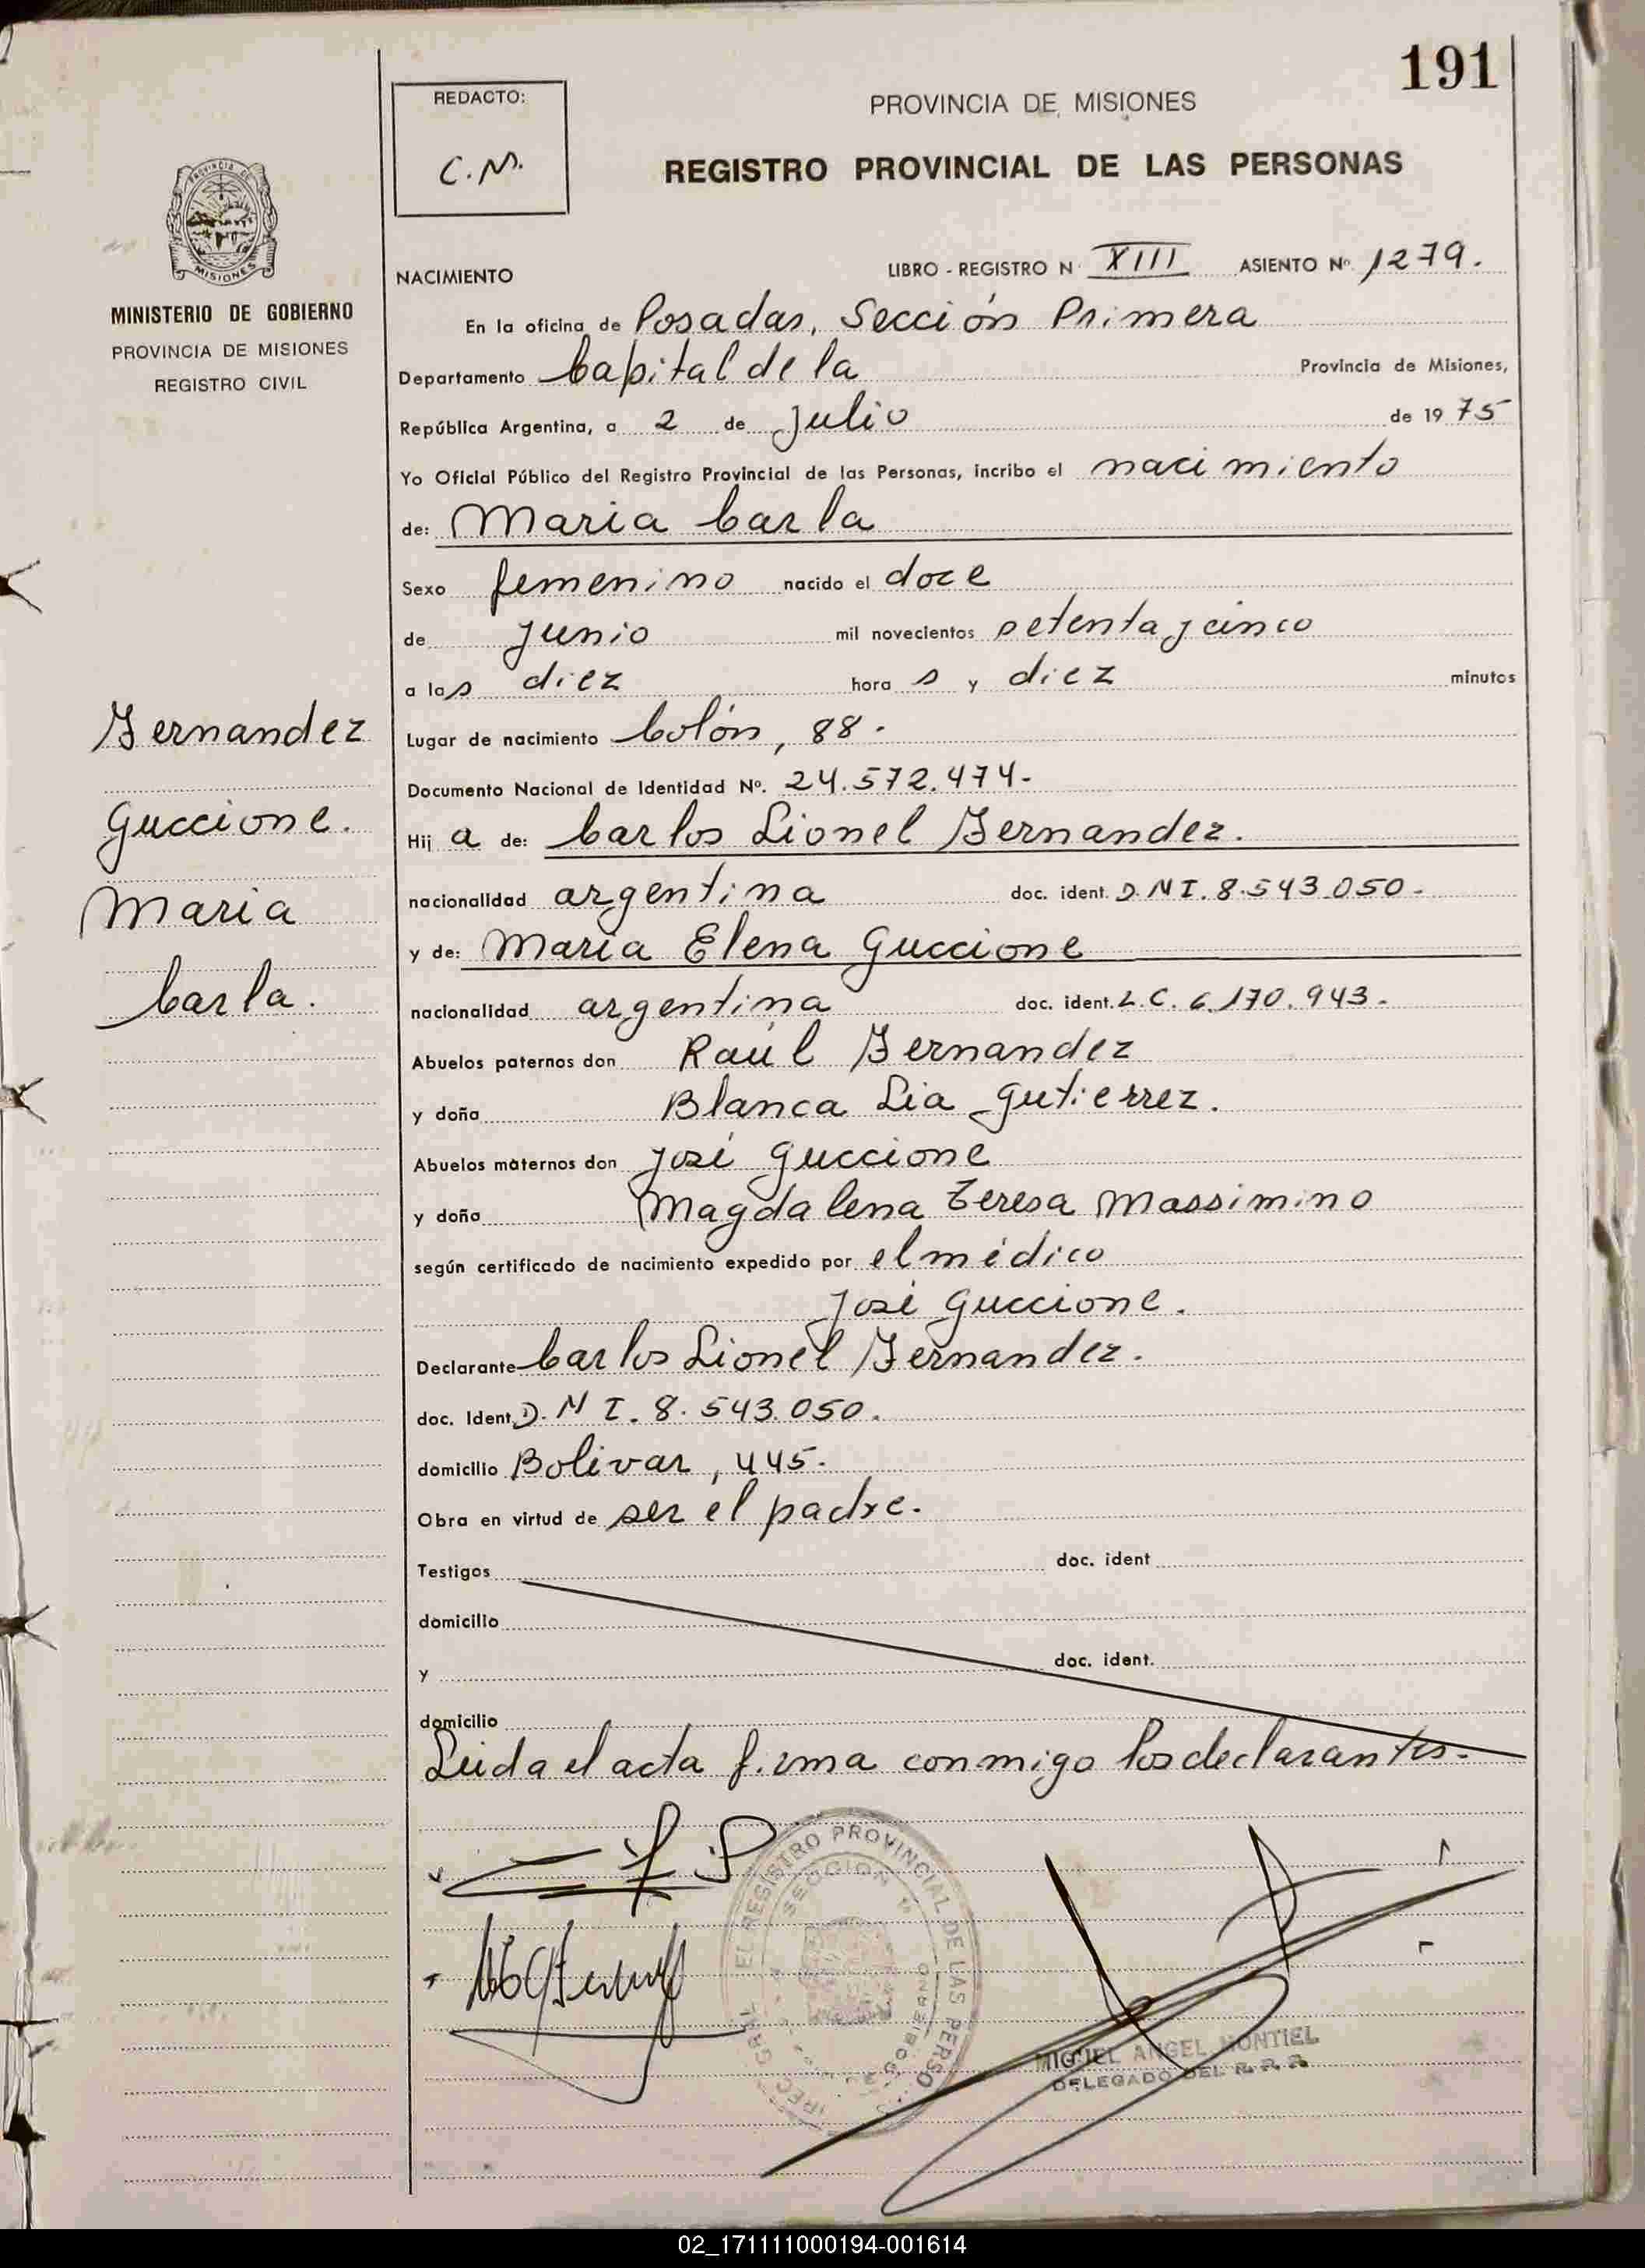 191
REDACTO:
C.M.
PROVINCIA DE MISIONES
REGISTRO PROVINCIAL DE LAS PERSONAS
PROVINCIA DE
MISIONES
MINISTERIO DE GOBIERNO
PROVINCIA DE MISIONES
REGISTRO CIVIL
NACIMIENTO
LIBRO - REGISTRO N XIII ASIENTO Nº 1279.
En la oficina de Posadas, Sección Primera
Departamento Capital de la Provincia de Misiones,
República Argentina, a 2 de Julio de 19 75
Yo Oficial Público del Registro Provincial de las Personas, incribo el nacimiento
de: Maria Carla
Sexo femenino nacido el doce
de junio mil novecientos setenta y cinco
a las diez hora s y diez minutos
Lugar de nacimiento Colón, 88.
Documento Nacional de Identidad Nº. 24.572.474-
Hij a de: Carlos Lionel Fernandez.
nacionalidad argentina doc. ident. D.N I. 8.543.050-
y de: Maria Elena Guccione
nacionalidad argentina doc. ident. L.C. 6.170.943-
Abuelos paternos don Raúl Fernandez
y doña Blanca Lia Gutierrez.
Abuelos maternos don José Guccione
y doña Magdalena Teresa Massimino
según certificado de nacimiento expedido por el médico
José Guccione.
Declarante Carlos Lionel Fernandez.
doc. Ident. D. N I. 8. 543.050.
domicilio Bolivar, 445.
Obra en virtud de ser el padre.
Testigos doc. ident
domicilio
y doc. ident.
domicilio
Leida el acta firma conmigo los declarantes.
Fernandez
Guccione.
Maria
Carla.
EL REGISTRO PROVINCIAL DE LAS PERSO
SECCION 1ª
MIGUEL ANGEL MONTIEL
DELEGADO DEL R. P. P.
02_171111000194-001614